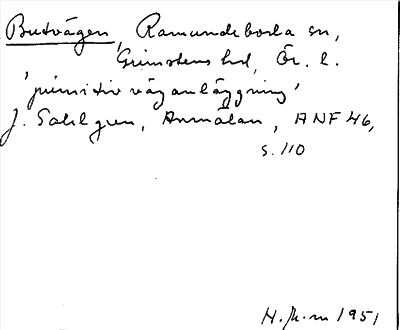 Butvägen, Ramundeboda sn,
Grimstens hd, Ör. l.
'primitiv väganläggning'
J. Sahlgren, Anmälan, ANF 46,
s. 110
1951